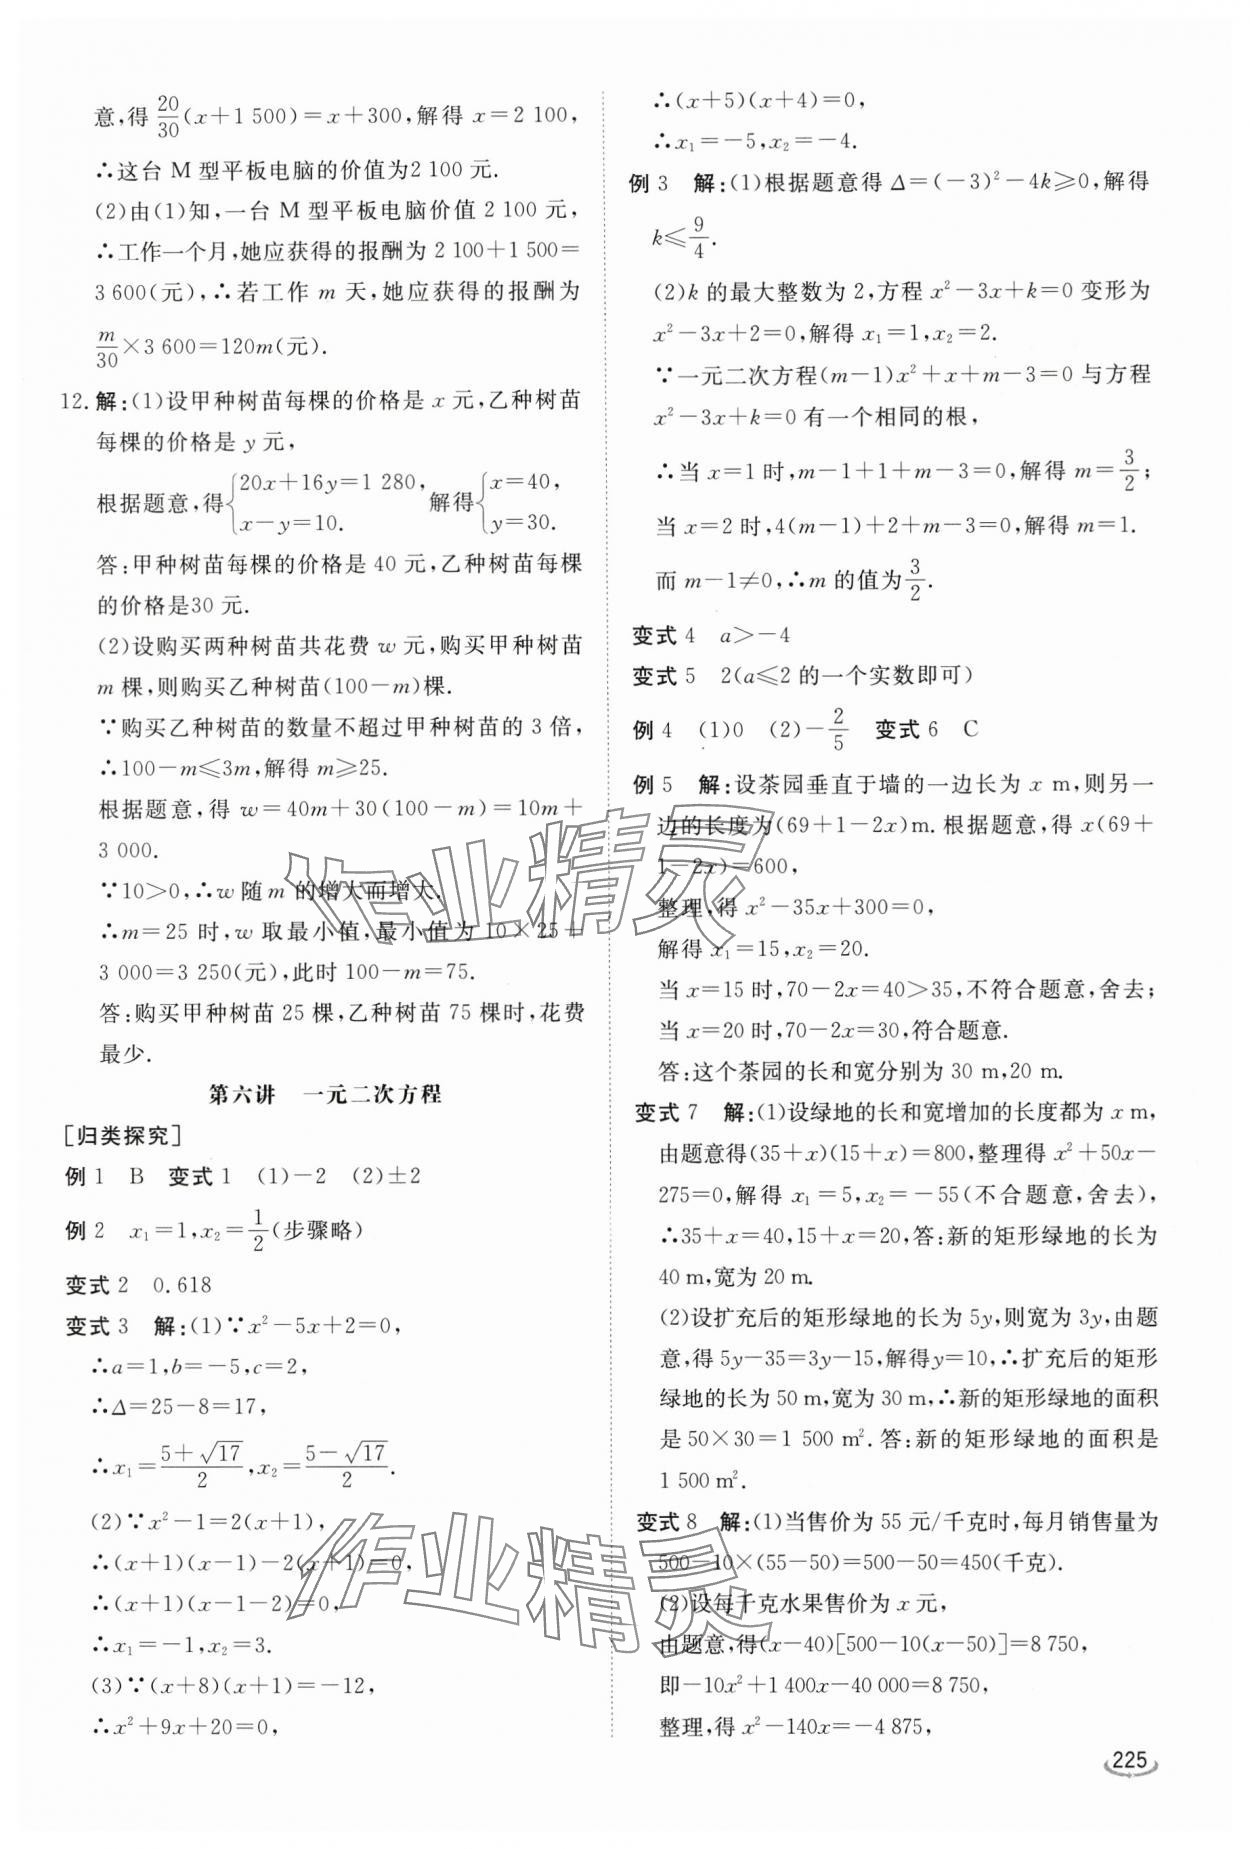 意,得20/30(x+1 500)=x+300,解得 x=2 100,
∴这台 M 型平板电脑的价值为2 100 元.
(2)由(1)知,一台 M 型平板电脑价值 2 100 元,
∴工作一个月,她应获得的报酬为 2 100+1 500=
3 600(元),∴若工作 m 天,她应获得的报酬为
m/30×3 600=120m(元).
12. 解:(1)设甲种树苗每棵的价格是 x 元,乙种树苗
每棵的价格是 y 元,
根据题意,得{20x+16y=1 280, x-y=10. 解得{x=40, y=30.
答:甲种树苗每棵的价格是 40 元,乙种树苗每棵
的价格是30 元.
(2)设购买两种树苗共花费 w 元,购买甲种树苗
m 棵,则购买乙种树苗(100-m)棵.
∵购买乙种树苗的数量不超过甲种树苗的 3 倍,
∴100-m≤3m,解得 m≥25.
根据题意,得 w=40m+30(100-m)=10m+
3 000.
∵10>0,∴w 随 m 的增大而增大.
∴m=25 时,w 取最小值,最小值为 10×25+
3 000=3 250(元),此时 100-m=75.
答:购买甲种树苗 25 棵,乙种树苗 75 棵时,花费
最少.
第六讲 一元二次方程
[归类探究]
例 1 B 变式 1 (1)-2 (2)±2
例 2 x₁=1,x₂=1/2(步骤略)
变式 2 0.618
变式 3 解:(1)∵x²-5x+2=0,
∴a=1,b=-5,c=2,
∴Δ=25-8=17,
∴x₁=(5+√17)/2,x₂=(5-√17)/2.
(2)∵x²-1=2(x+1),
∴(x+1)(x-1)-2(x+1)=0,
∴(x+1)(x-1-2)=0,
∴x₁=-1,x₂=3.
(3)∵(x+8)(x+1)=-12,
∴x²+9x+20=0,
∴(x+5)(x+4)=0,
∴x₁=-5,x₂=-4.
例 3 解:(1)根据题意得 Δ=(-3)²-4k≥0,解得
k≤9/4.
(2)k 的最大整数为 2,方程 x²-3x+k=0 变形为
x²-3x+2=0,解得 x₁=1,x₂=2.
∵一元二次方程(m-1)x²+x+m-3=0 与方程
x²-3x+k=0 有一个相同的根,
∴当 x=1 时,m-1+1+m-3=0,解得 m=3/2;
当 x=2 时,4(m-1)+2+m-3=0,解得 m=1.
而 m-1≠0,∴m 的值为3/2.
变式 4 a>-4
变式 5 2(a≤2 的一个实数即可)
例 4 (1)0 (2)-2/5 变式 6 C
例 5 解:设茶园垂直于墙的一边长为 x m,则另一
边的长度为(69+1-2x)m.根据题意,得 x(69+
1-2x)=600,
整理,得 x²-35x+300=0,
解得 x₁=15,x₂=20.
当 x=15 时,70-2x=40>35,不符合题意,舍去;
当 x=20 时,70-2x=30,符合题意.
答:这个茶园的长和宽分别为 30 m,20 m.
变式 7 解:(1)设绿地的长和宽增加的长度都为 x m,
由题意得(35+x)(15+x)=800,整理得 x²+50x-
275=0,解得 x₁=5,x₂=-55(不合题意,舍去),
∴35+x=40,15+x=20.答:新的矩形绿地的长为
40 m,宽为 20 m.
(2)设扩充后的矩形绿地的长为 5y,则宽为 3y,由题
意,得 5y-35=3y-15,解得y=10,∴扩充后的矩形
绿地的长为 50 m,宽为 30 m,∴新的矩形绿地的面积
是 50×30=1 500 m².答:新的矩形绿地的面积是
1 500 m².
变式 8 解:(1)当售价为 55 元/千克时,每月销售量为
500-10×(55-50)=500-50=450(千克).
(2)设每千克水果售价为 x 元,
由题意,得(x-40)[500-10(x-50)]=8 750,
即-10x²+1 400x-40 000=8 750,
整理,得 x²-140x=-4 875,
225
作业精灵
作业精灵